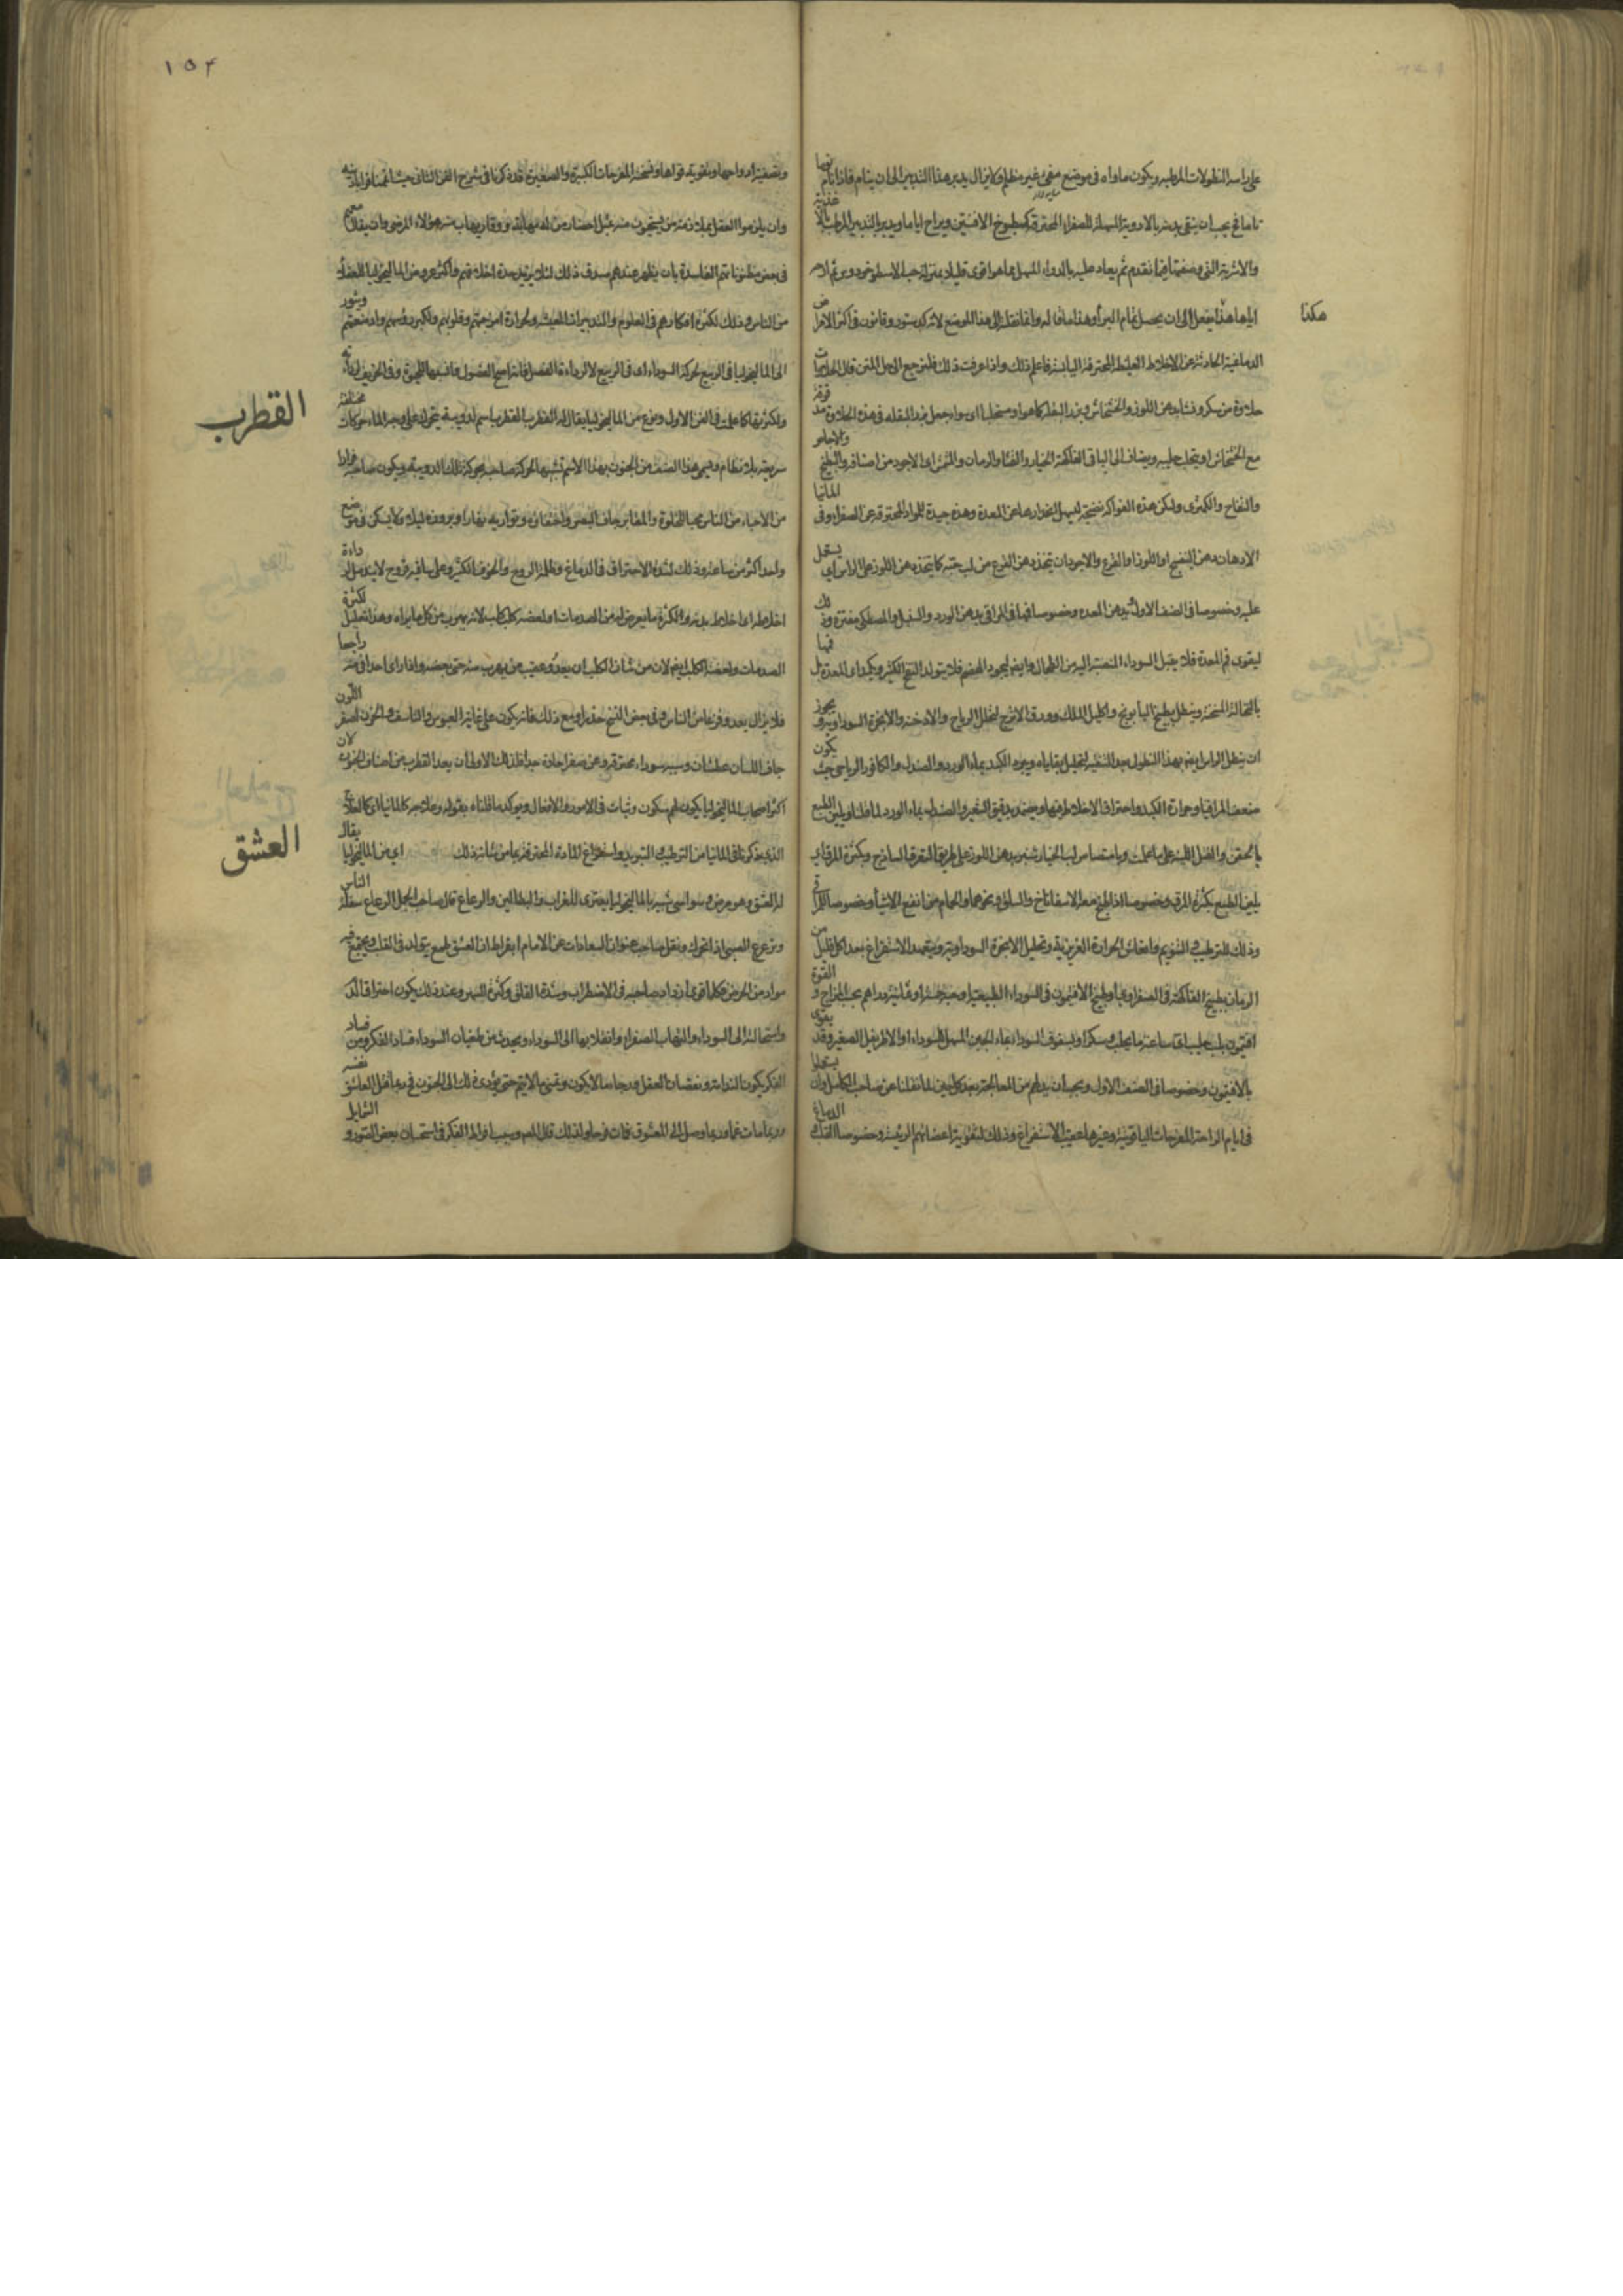 على راسه النطولات المرطبه ويكون ماواه فى موضع مضئ غير مظلم ولا يزال يدبر هذا التدبير الى ان ينام فاذا نام نوما
تاما يجب ان ينقى بدنه بالادوية المسهلة للصفراء المحترقة كمطبوخ الافسنتين ويراح اياما ويدبر بالتدبير المرطب بالاغذية
والاشربة التى وصفتها فيما تقدم ثم يعاد عليه بالدواء المسهل بما هو اقوى قليلا بمنزلة حب الاسطوخودوس ثم
هكذا
ايضا هذا يفعل الى ان يحصل تمام البرأ وهذا ما قاله وانما نقلناه الى هذا الموضع لانه كدستور وقانون فى اكثر الامراض
الدماغية الحادثة عن الاخلاط الغليظة المحترقة اليابسة فاعلم ذلك واذا عرفت ذلك فلنرجع الى حل المتن قال
حلاوة من سكر ونشا بدهن اللوز والخشخاش وبزر البقلة
مع الخشخاش او بحليب ويضاف الى الباقى الفاكهة الخيار والقثا والرمان والمشمش اى الاجود من اصنافه والبطيخ
والتفاح والكمثرى ولكن هذه الفواكه نضيجة ليسهل انحدارها عن المعدة وهذه جيدة للمواد المحترقة عن الصفراء وفى المانيا
الادهان دهن البنفسج او اللوز او القرع والاجود ان يتخذ دهن القرع من لب حبه كما يتخذ دهن اللوز على الراس اى يستعمل
عليه وخصوصا فى الصنف الاول تدهن المعدة وخصوصا فمها فى المراقى بدهن الورد والسنبل والمصطكى مفترة وذلك
ليقوى فم المعدة فلا يقبل السوداء المنصبة اليه من الطحال وايضا ليجود الهضم فلا يتولد النفخ الكثير ويكمد اى المعدة
بالنخالة المسخنة وينطل بطبيخ البابونج واكليل الملك وورق الاترج لتحلل الرياح والادخنة والابخرة السوداوية ويجوز
ان ينطل الراس ايضا بهذا النطول بعد التنقية لتحليل بقاياه ويبرد الكبد بماء الورد والصندل والكافور الرياحى حيث يكون
ضعف المراقيا وحرارة الكبد واحتراق الاخلاط فيها ويضمد بدقيق الشعير والصندل بماء الورد لما قلنا ويلين الطبع
بالحقن والفتل اللينة على ما علمت وبامتصاص لب الخيار شنبر بدهن اللوز على طريق التفرقة الساذج وبكثرة المرق اى
يلين الطبع بكثرة المرق وخصوصا اذا طبخ معه الاسفاناخ والسلق ونحوهما والحمام من انفع الاشيا وخصوصا للمراقى
وذلك للترطيب والتنويم وانعاش الحرارة الغريزية وتحليل الابخرة السوداوية ويتعهد الاستفراغ بعد اكل قليل من
الزمان بطبيخ الفاكهة فى الصفراوية او طبيخ الافتيمون فى السوداء الطبيعية بحسب المزاج والقوة
افتيمون بلبن حليب ساعة ما يحلب وسكر او بسفوف السوداء بماء الجبن المسهل للسوداء او الاطريفل الصغير وقد يقوى
بالافتيمون وخصوصا فى الصنف الاول ويجب ان يراحهم من المعالجة بعد كل حين لما نقلنا عن صاحب الكامل وان يستعملوا
فى ايام الراحة المفرحات الياقوتية وغيرها عقيب الاستفراغ وذلك لتقوية اعضائهم الرئيسة وخصوصا القلب والدماغ
١٥٤
وتصفية ارواحها وتقوية قواها ونسخة المفرحات الكبيرة والصغيرة قد ذكرنا فى شرح الفن الثانى حيث اتممنا قرابادينه
وان يلزموا العقل بملازمة من يستحيون منه قبل احضار من له مهابة ووقار يهاب منه هؤلاء المرضى وان يقال معهم
فى بعض ظنونهم الفاسدة بان يظهر عندهم صدق ذلك لئلا يزيد حدة اخلاقهم واكثر عروض الماليخوليا للفضلاء
من الناس وذلك لكثرة افكارهم فى العلوم والتدبيرات المعيشة ولحرارة امزجتهم وقلوبهم ولكبر رؤسهم وادمغتهم ويثور
الى الماليخوليا فى الربيع لحركة السوداء اى فى الربيع لا لرداءة الفصل فانه اصح الفصول فانسبها للحيوة وفى الخريف لرداءته
القطرب
ولكثرتها كما علمت فى الفن الاول ونوع من الماليخوليا يقال له القطرب القطرب اسم لدويبة يتحرك على وجه الماء حركات مختلفة
سريعة بلا نظام وسمى هذا الصنف من الجنون بهذا الاسم تشبيها لحركة صاحبه بحركة تلك الدويبة ويكون صاحبه فرارا
من الاحياء من الناس محبا للخلوة والمقابر جاف البصر واختفائه وتواريه نهارا وبروزه ليلا ولا يسكن فى موضع
واحد اكثر من ساعة وذلك لشدة الاحتراق فى الدماغ وظلمة الروح والخوف الكثير وعلى ساقيه قروح لا يندمل لرداءة
اخلاطه اى اخلاط بدنه ولكثرة ما يعرض له من الصدمات او لعضه كلب كلب لانه يهرب من كل ما يراه وهذا تعليل لكثرة
الصدمات ولعضه الكلب ايضا لان من شان الكلب ان يعدو عقيب من يهرب منه حتى يعضه واذا راى احدا فر منه راجعا
فلا يزال يعدو وفزعا من الناس وفى بعض النسخ حذرا ومع ذلك فانه يكون على غاية العبوس والتأسف والحزن اصفر اللون
جاف اللسان عطشان وسببه سوداء محترقة عن صفرا حادة جدا فلذلك الاولى ان يعد القطرب من اصناف الجنون لان
اكثر اصحاب الماليخوليا يكون لهم سكون وثبات فى الامور والافعال ويؤكد ما قلناه بقوله وعلاجه كالمانيا اى كالعلاج
العشق
الذى ذكرناه للمانيا من الترطيب والتبريد واستفراغ المادة المحترقة بما من شانه ذلك اى من الماليخوليا يقال
له العشق وهو مرض وسواسى شبيه بالماليخوليا يعترى للعزاب والبطالين والرعاع قال صاحب المجمل الرعاع سفلة الناس
وترعرع الصبى اذا تحرك ونقل صاحب عنوان السعادات عن الامام ابقراط ان العشق طمع يتولد فى القلب ويجتمع فيه
مواد من الحرص فكلما قوى ازداد صاحبه فى الاضطراب وشدة القلق وكثرة السهر وعند ذلك يكون احتراق الدم
واستحالته الى السوداء والتهاب الصفراء وانقلابها الى السوداء ويحدث من طغيان السوداء فساد الفكر ومن فساد
الفكر يكون الندامة ونقصان العقل ورجا ما لا يكون وتمنى ما لا يتم حتى يؤدى ذلك الى الجنون فربما قتل العاشق نفسه
وربما مات غما وربما وصل الى المعشوق فمات فرحا ولذلك قال المص وسببه افراط الفكر فى استحسان بعض الصور والشمايل